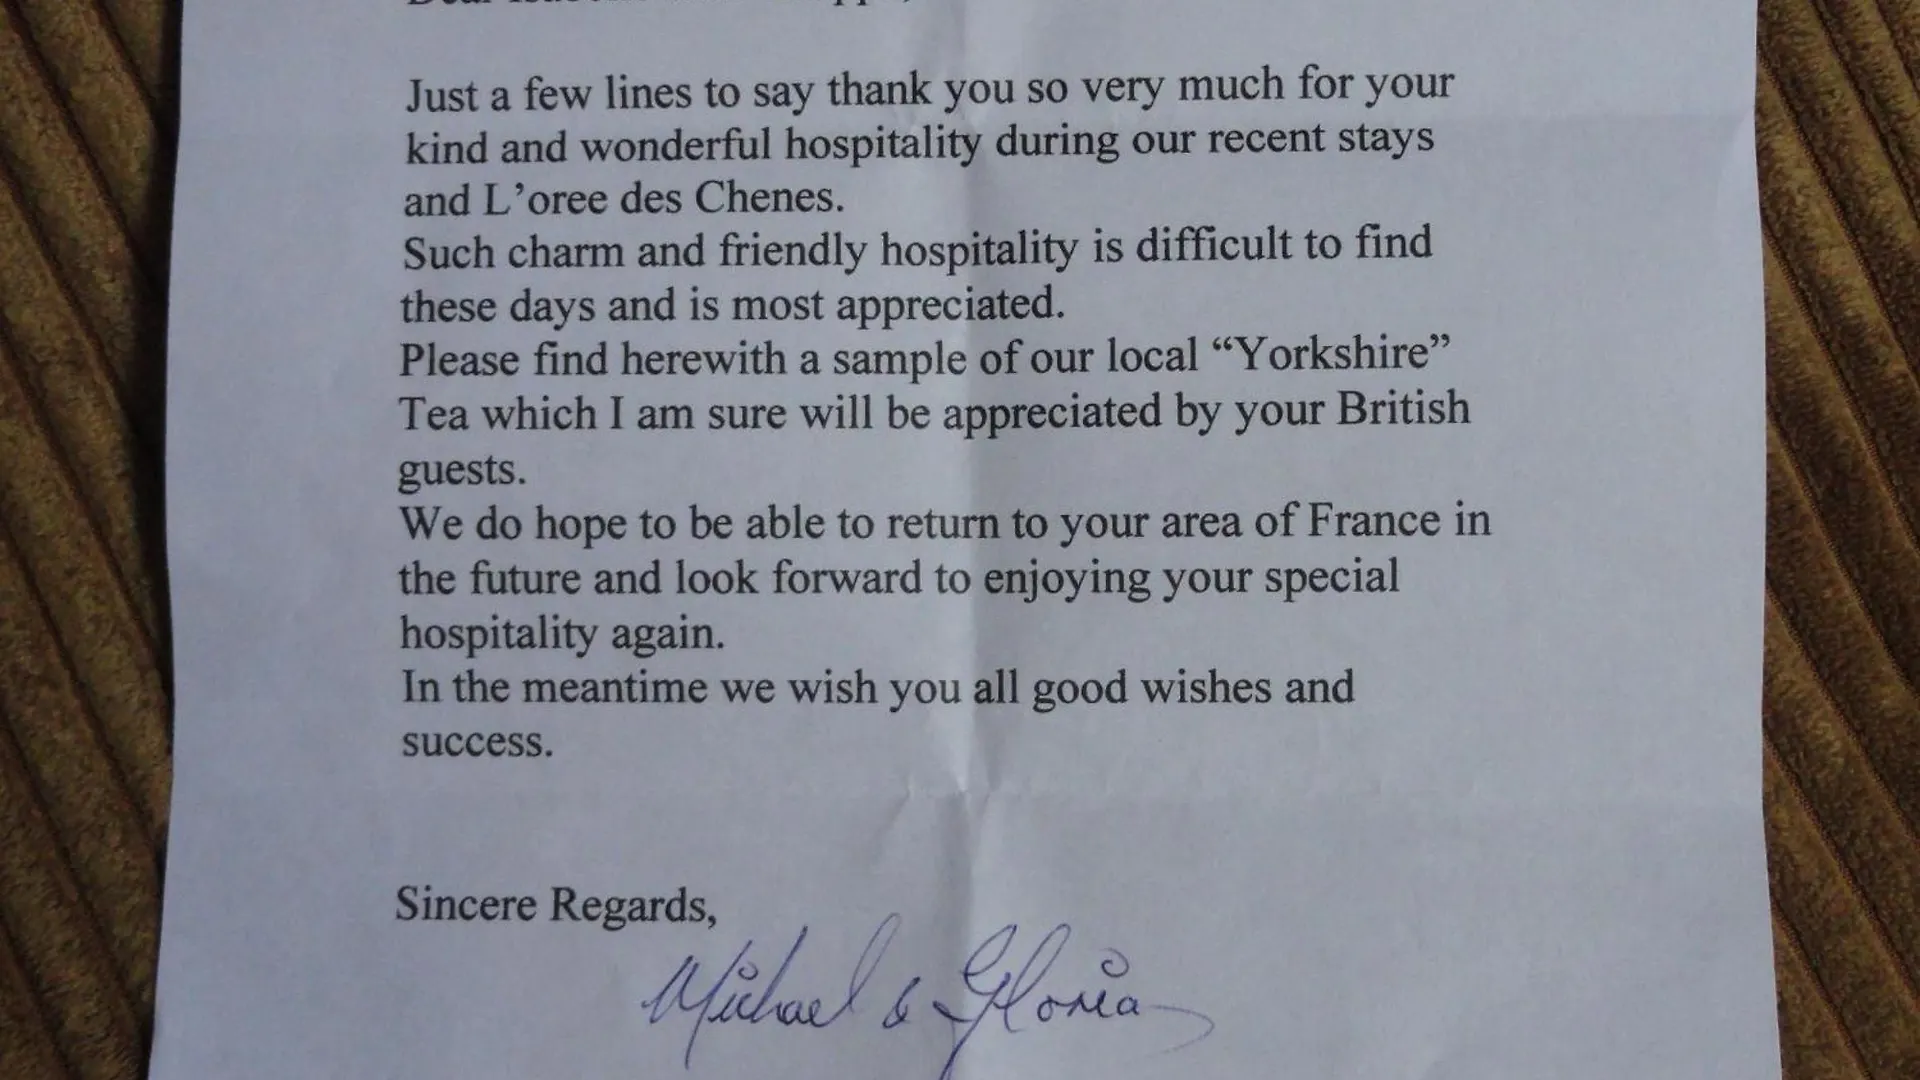 Dear
Just a few lines to say thank you so very much for your
kind and wonderful hospitality during our recent stays
and L’oree des Chenes.
Such charm and friendly hospitality is difficult to find
these days and is most appreciated.
Please find herewith a sample of our local “Yorkshire”
Tea which I am sure will be appreciated by your British
guests.
We do hope to be able to return to your area of France in
the future and look forward to enjoying your special
hospitality again.
In the meantime we wish you all good wishes and
success.
Sincere Regards,
Michael & Gloria